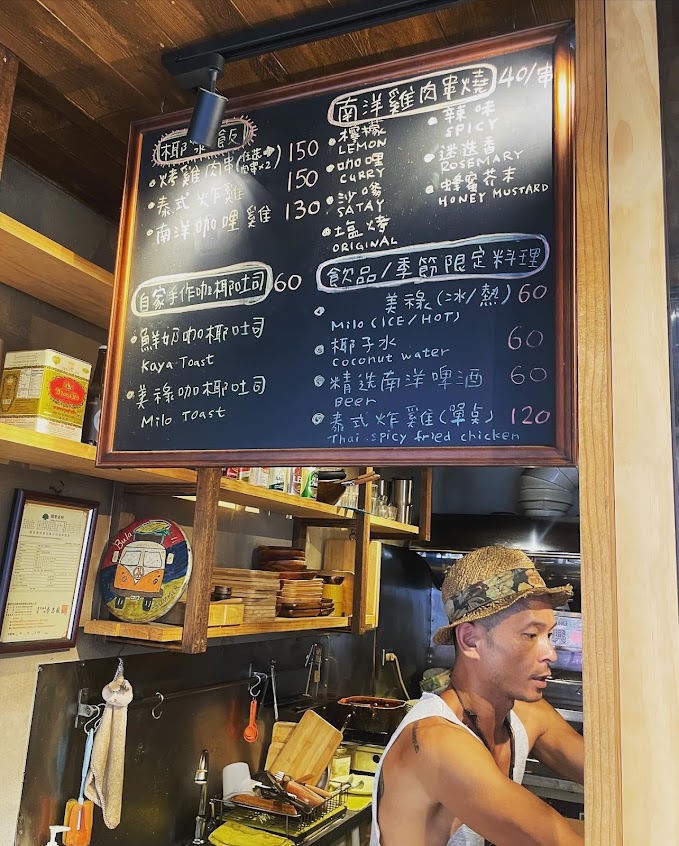 椰漿飯
烤雞肉串(任選肉串×2) 150
泰式炸雞 150
南洋咖哩雞 130
自家手作咖椰吐司 60
鮮奶咖椰吐司
Kaya Toast
美祿咖椰吐司
Milo Toast
南洋雞肉串燒 40/串
檸檬
LEMON
咖哩
CURRY
沙嗲
SATAY
塩烤
ORIGINAL
辣味
SPICY
迷迭香
ROSEMARY
蜂蜜芥末
HONEY MUSTARD
飲品/季節限定料理
美祿(冰/熱) 60
Milo (ICE/HOT)
椰子水 60
Coconut water
精选南洋啤酒 60
Beer
泰式炸雞(單点) 120
Thai spicy fried chicken
Bula